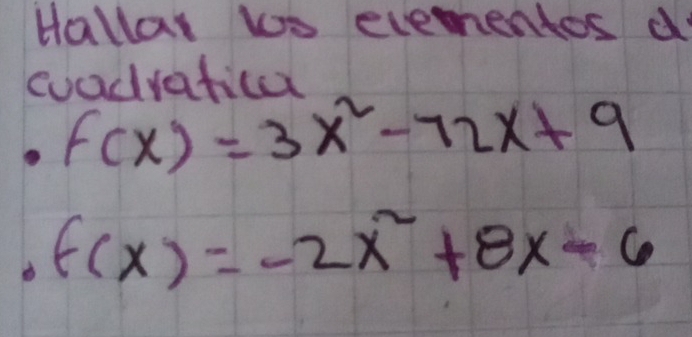 Hallar los elementos d
cuadratica
. f(x) = 3x² - 12x + 9
. f(x) = -2x² + 8x - 6